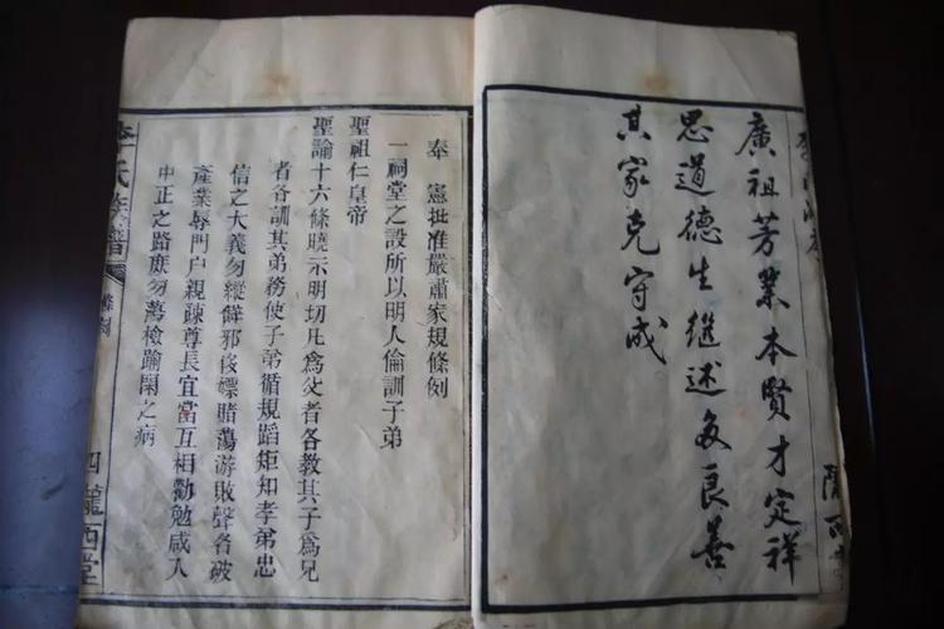 廣祖芳業本賢才定祥
思道德生继述多良善
其家克守成
奉 憲批准嚴肅家規條例
一祠堂之設所以明人倫訓子弟
聖祖仁皇帝
聖諭十六條曉示明切凡爲父者各教其子爲兄
者各訓其弟務使子弟循規蹈矩知孝弟忠
信之大義勿縱僻邪侈嫖賭蕩游敗聲名破
產業辱門户親疎尊長宜當互相勸勉咸入
中正之路庶勿蕩檢踰閑之病
李氏族譜
四 隴西堂